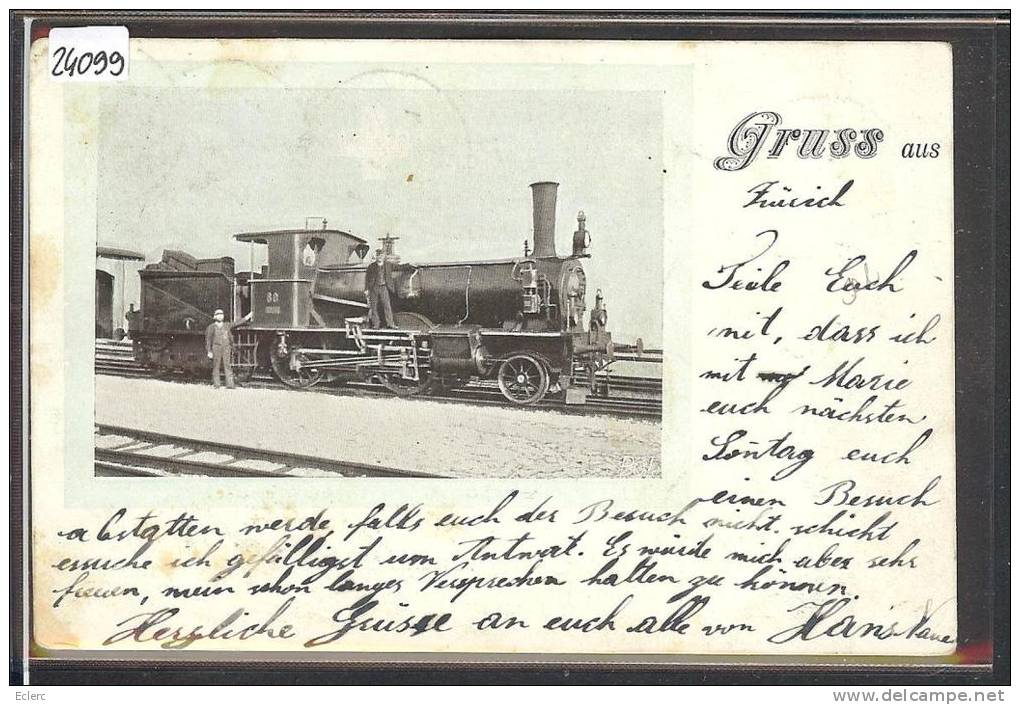 24099
Gruss aus
Zürich
Teile Euch
mit, dass ich
mit Marie
euch nächsten
Sontag euch
einen Besuch
abstatten werde, falls euch der Besuch nicht schickt
ersuche ich gefälligst um Antwort. Es würde mich aber sehr
freuen, mein schon langes Versprechen halten zu können.
Herzliche Grüsse an euch alle von Hans
80
Eclerc
www.delcampe.net